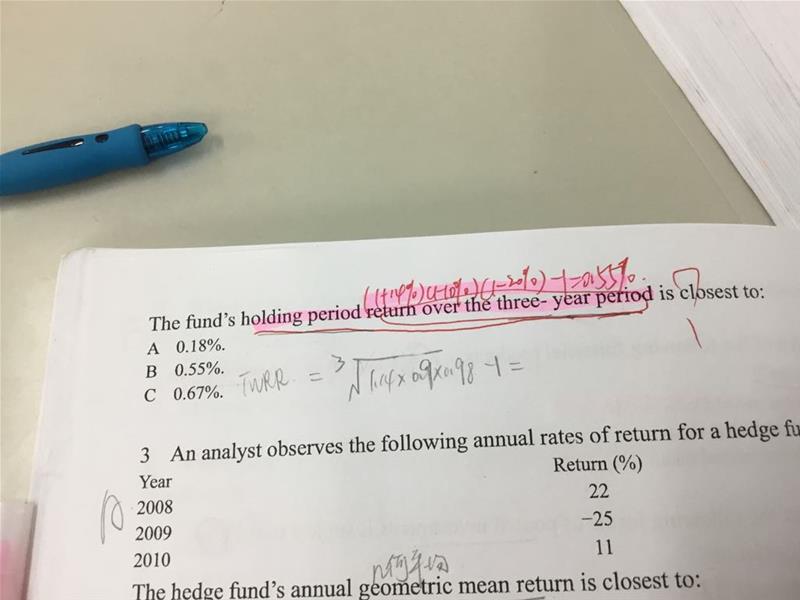 (1+14%)(1-10%)(1-2%)-1=0.55%.
The fund's holding period return over the three- year period is closest to:
A 0.18%.
B 0.55%.
C 0.67%.
TWRR = ³√1.14×0.9×0.98 -1 =
3 An analyst observes the following annual rates of return for a hedge fu
Year Return (%)
2008 22
2009 −25
2010 11
几何平均
The hedge fund's annual geometric mean return is closest to: